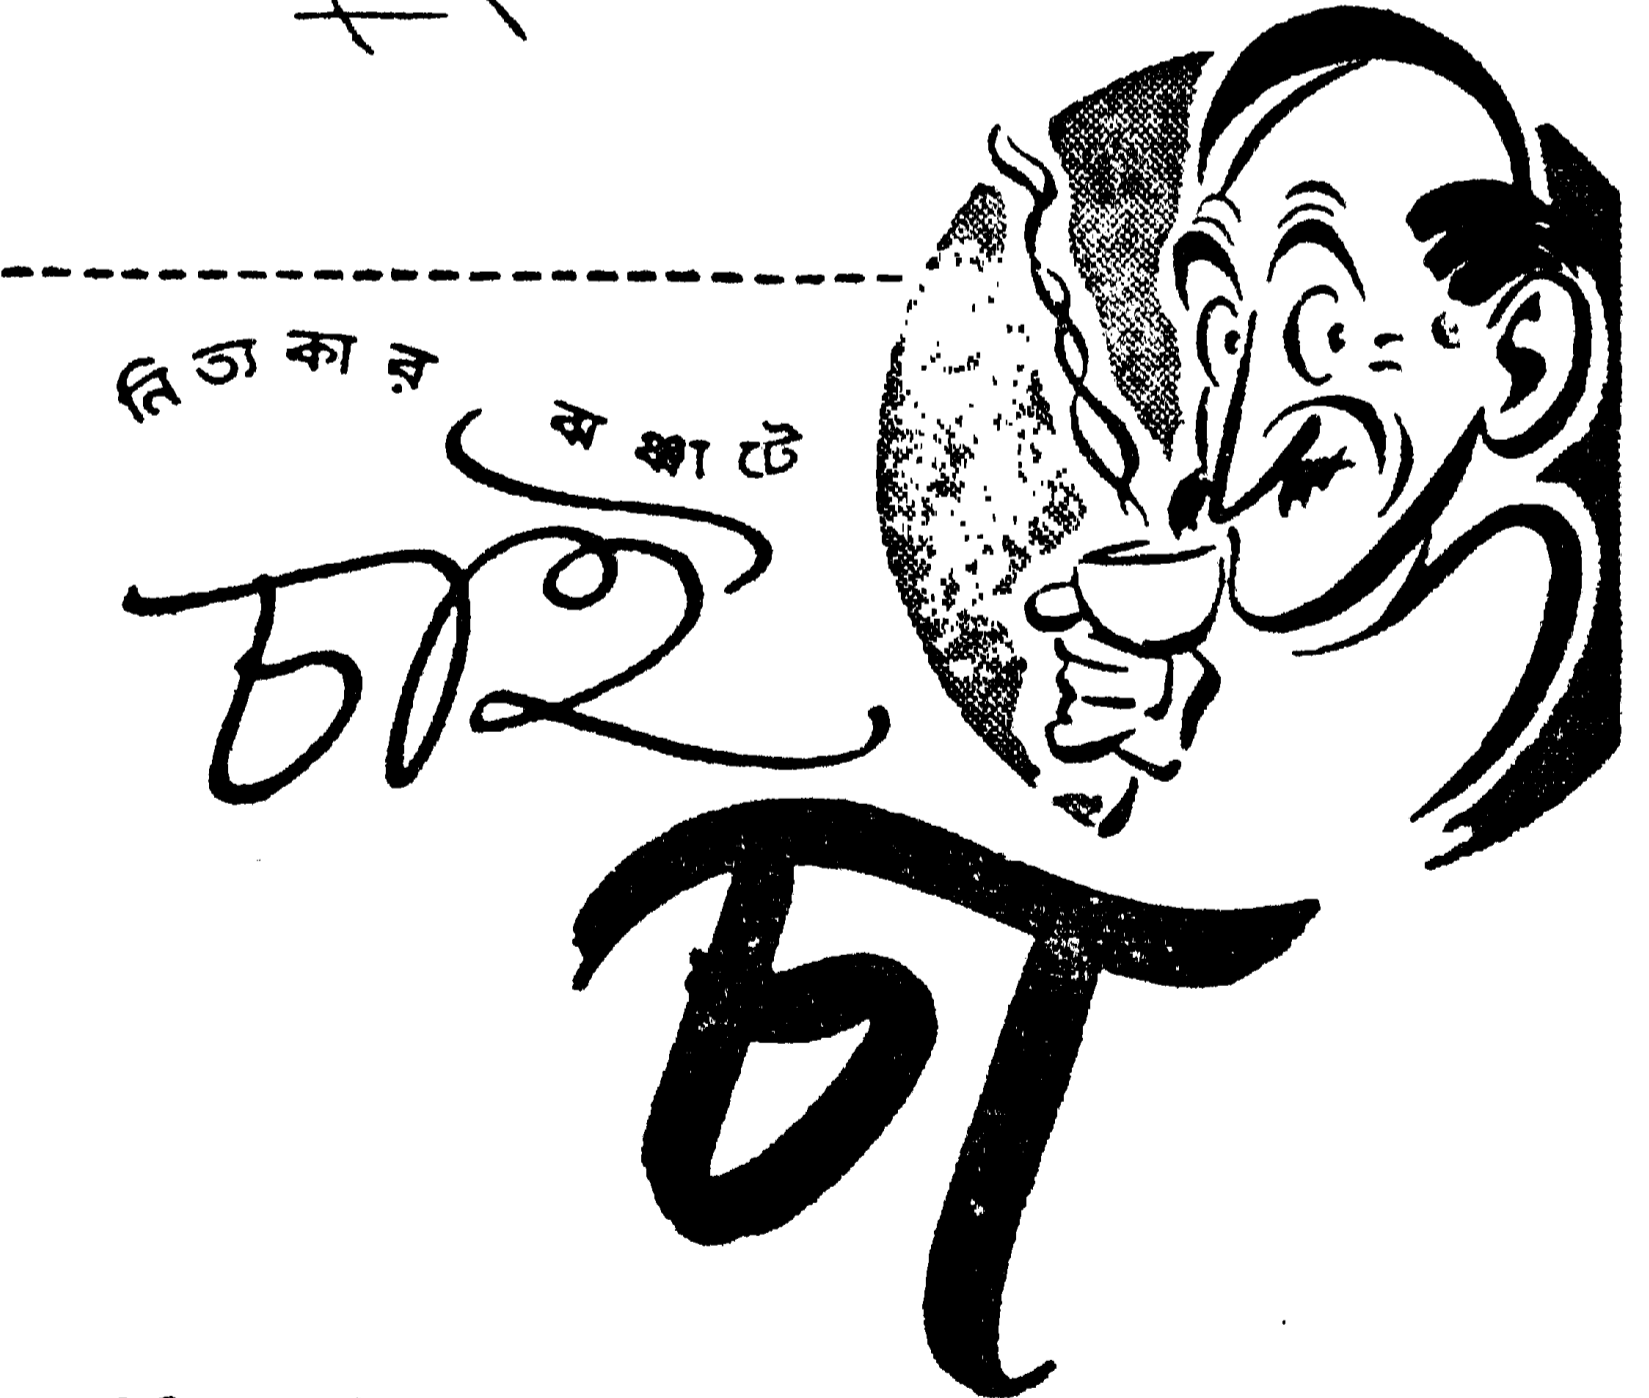 নিত্যকার ঝঞ্ঝাটে
চাই
চা